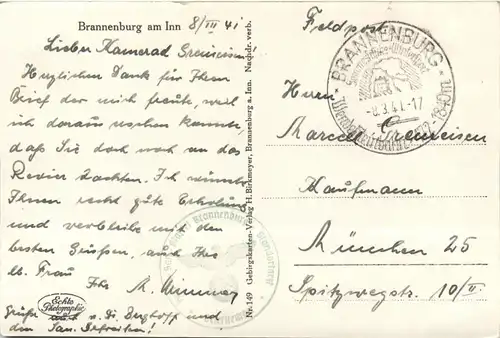 Brannenburg am Inn 8/III 41
Lieber Kamerad Greineisen!
Herzlichen Dank für Ihren
Brief der mir freute, weil
ich daraus ersehen konnte,
daß Sie doch noch an das
Revier dachten. Ich wünsche
Ihnen recht gute Erholung
und verbleibe mit den
besten Grüßen, auch Ihre
lb. Frau
Ihr
Echte Photographie
Grüße auch v. Dr. Berghoff und
den San. Gefreiten!
Nr. 149 Gebirgskarten-Verlag H. Birkmeyer, Brannenburg a. Inn. Nachdr. verb.
Feldpost
BRANNENBURG
-8.3.41-17
Herrn
Marcel Greineisen
Kaufmann
München 25
Spitzwegstr. 10/II.